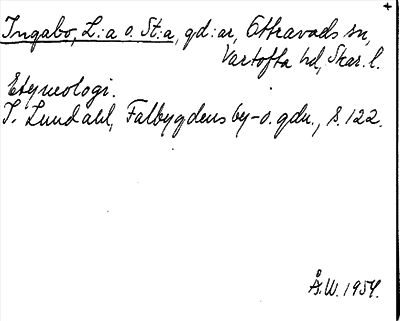 Ingabo, L:a o. St:a, gd:ar, Ottravads sn,
Vartofta hd, Skar. l.
Etymologi.
I. Lundahl, Falbygdens by- o. gdn., s. 122.
Å.W. 1954.